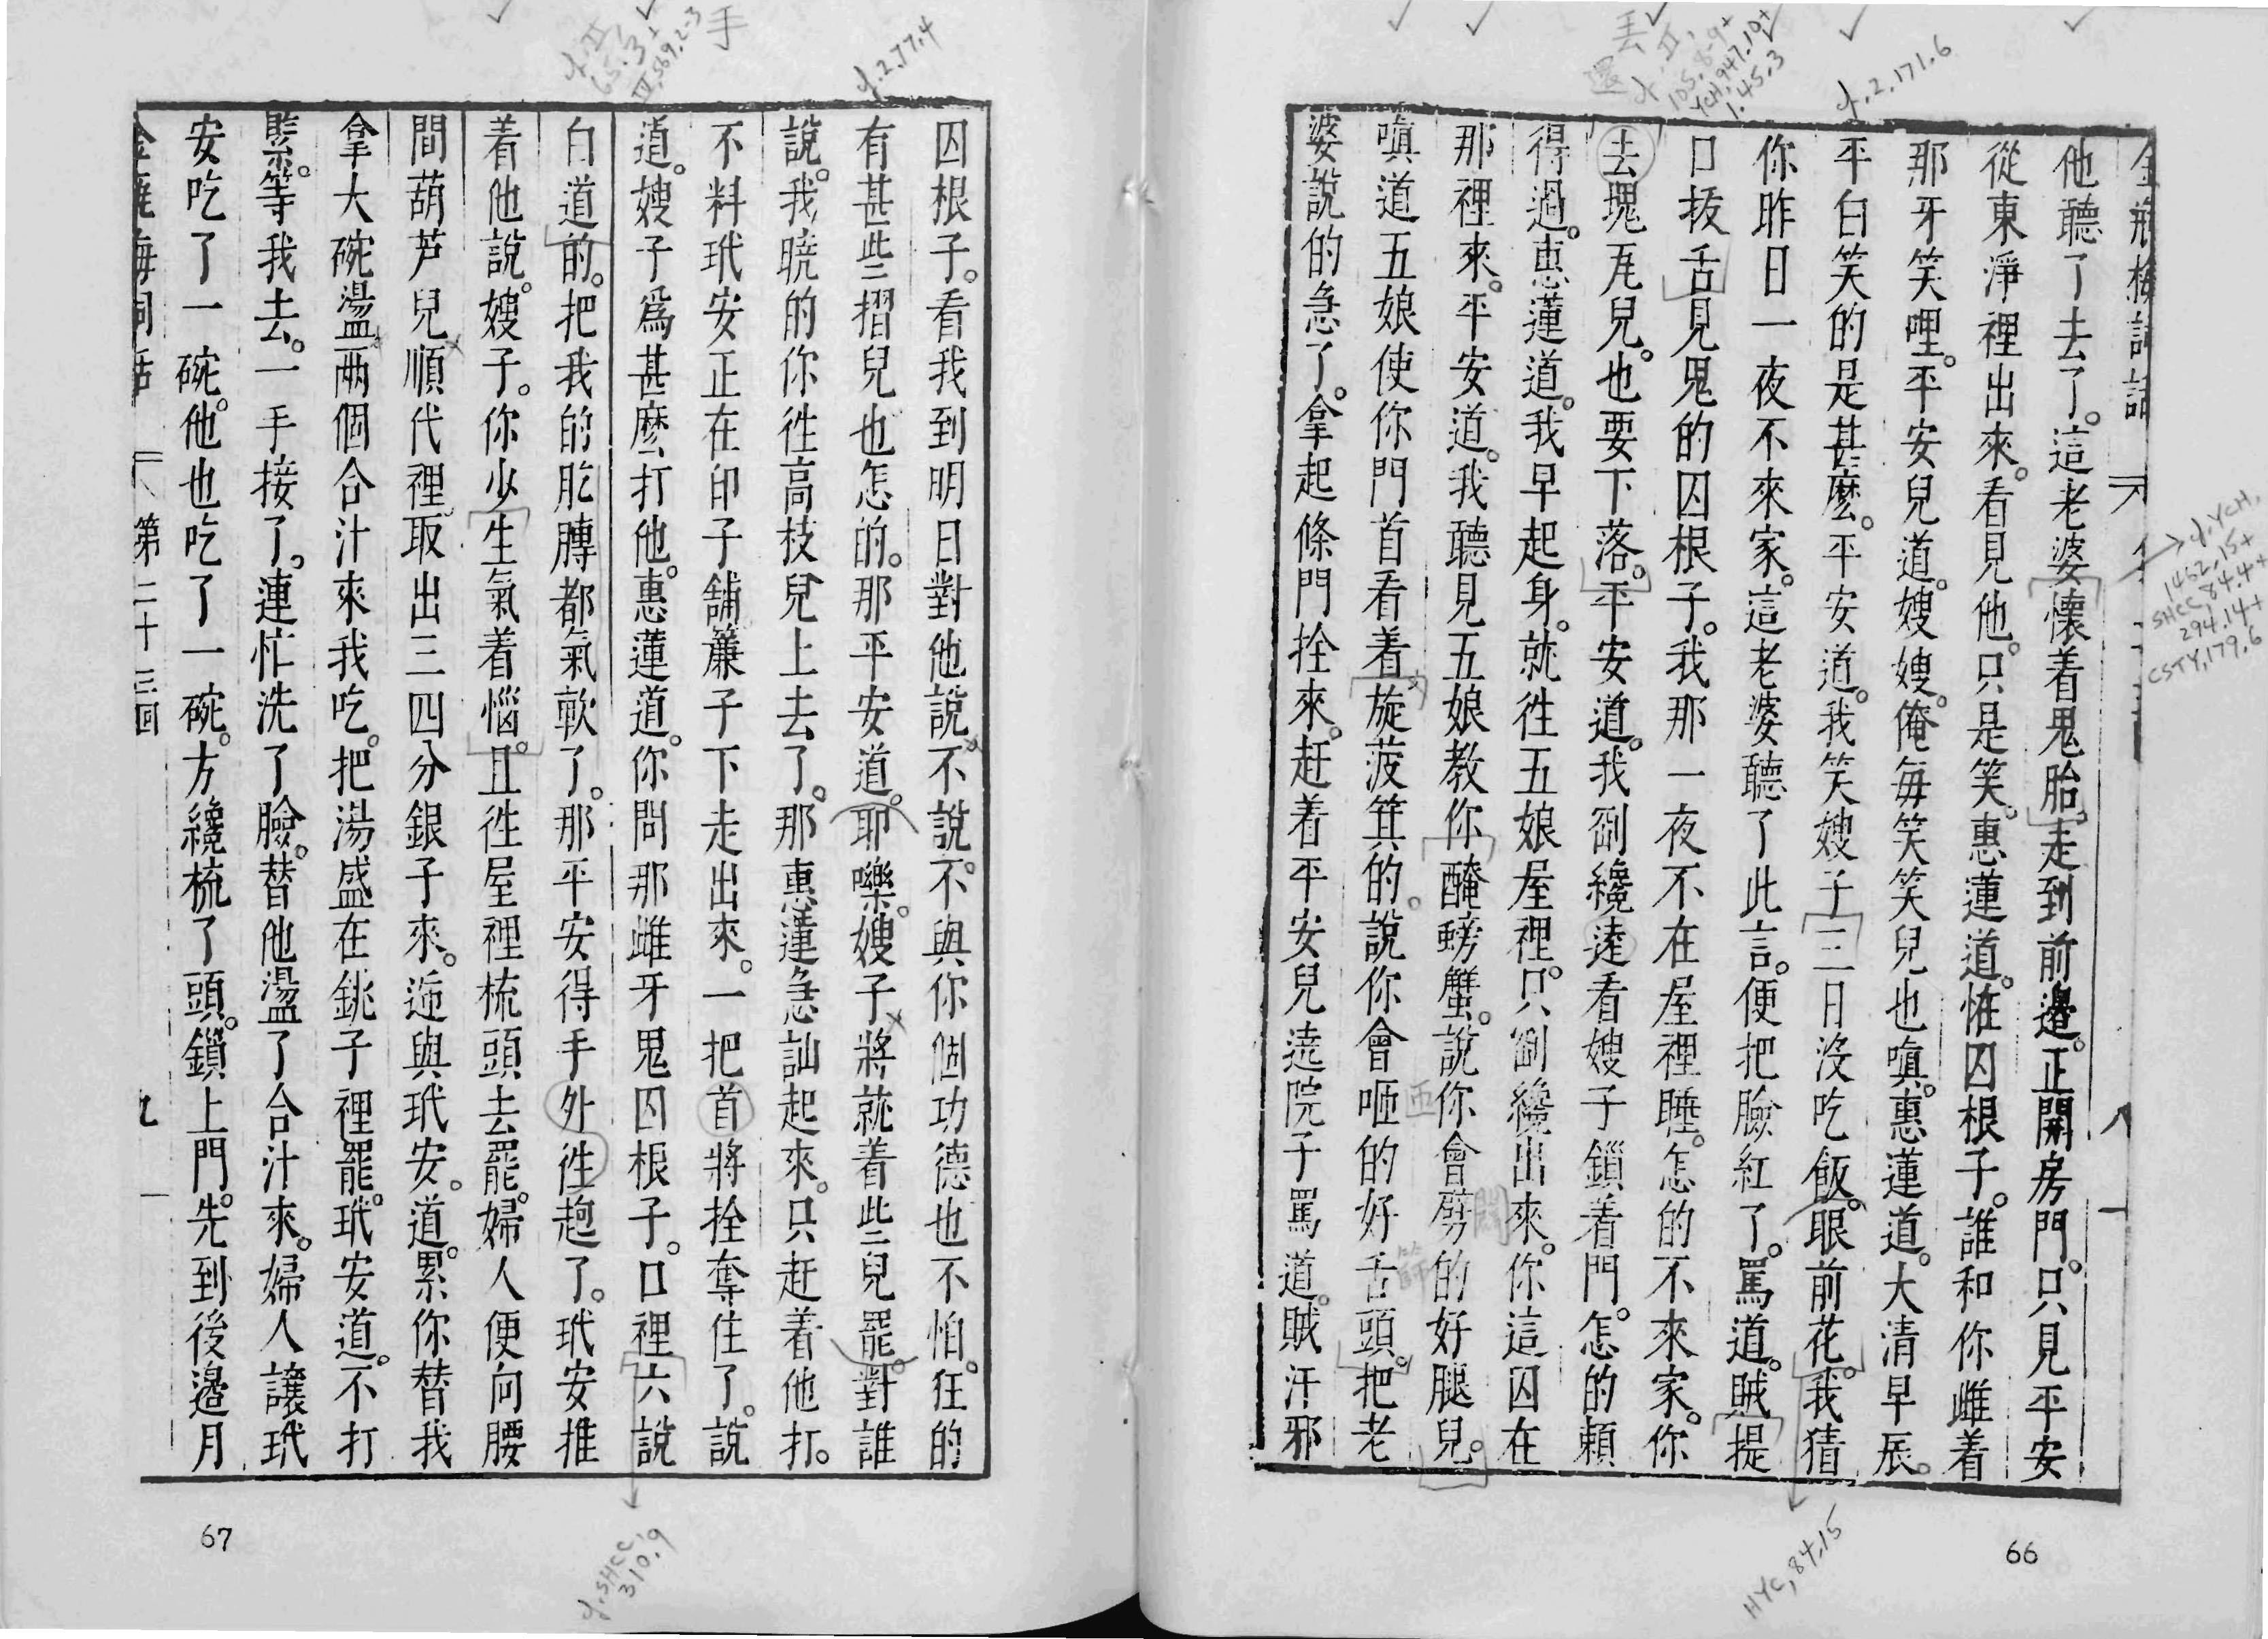 金瓶梅詞話 八
他聽了去了。這老婆懷着鬼胎。走到前邊。正開房門。只見平安
從東淨裡出來。看見他。只是笑。惠蓮道。恠囚根子。誰和你雌着
那牙笑哩。平安兒道。嫂嫂。俺每笑笑兒也嗔。惠蓮道。大清早辰。
平白笑的是甚麽。平安道。我笑嫂子三日没吃飯。眼前花。我猜
你昨日一夜不來家。這老婆聽了此言。便把臉紅了。罵道。賊提
口拔舌見鬼的囚根子。我那一夜不在屋裡睡。怎的不來家。你
去塊瓦兒。也要下落。平安道。我剛纔還看嫂子鎖着門。怎的頼
得過。惠蓮道。我早起身。就徃五娘屋裡。只剛纔出來。你這囚在
那裡來。平安道。我聽見五娘教你醃螃蟹。說你會劈的好腿兒。
嗔道五娘使你門首看着旋菠箕的。說你會咂的好舌頭。把老
婆說的急了。拿起條門拴來。赶着平安兒遶院子罵道。賊汗邪
66
囚根子。看我到明日對他說不說。不與你個功德也不怕。狂的
有甚些摺兒也怎的。那平安道。耶嚛。嫂子將就着些兒罷。對誰
說。我曉的你徃高枝兒上去了。那惠蓮急訕起來。只赶着他打。
不料玳安正在印子鋪簾子下走出來。一把首將拴奪住了。說
道。嫂子爲甚麽打他。惠蓮道。你問那雌牙鬼囚根子。口裡六說
白道的。把我的肐膊都氣軟了。那平安得手外徃趄了。玳安推
着他說。嫂子。你少生氣着惱。且徃屋裡梳頭去罷。婦人便向腰
間葫芦兒順代裡取出三四分銀子來。遞與玳安。道。累你替我
拿大碗盪兩個合汁來我吃。把湯盛在銚子裡罷。玳安道。不打
緊。等我去。一手接了。連忙洗了臉。替他盪了合汁來。婦人讓玳
安吃了一碗。他也吃了一碗。方纔梳了頭。鎖上門。先到後邊月
金瓶梅詞話 第二十三回 九
67
手
丟
還
cf. 2.77.4
cf. 2.171.6
HYC, 84.15
cf. SHCC, 310.9